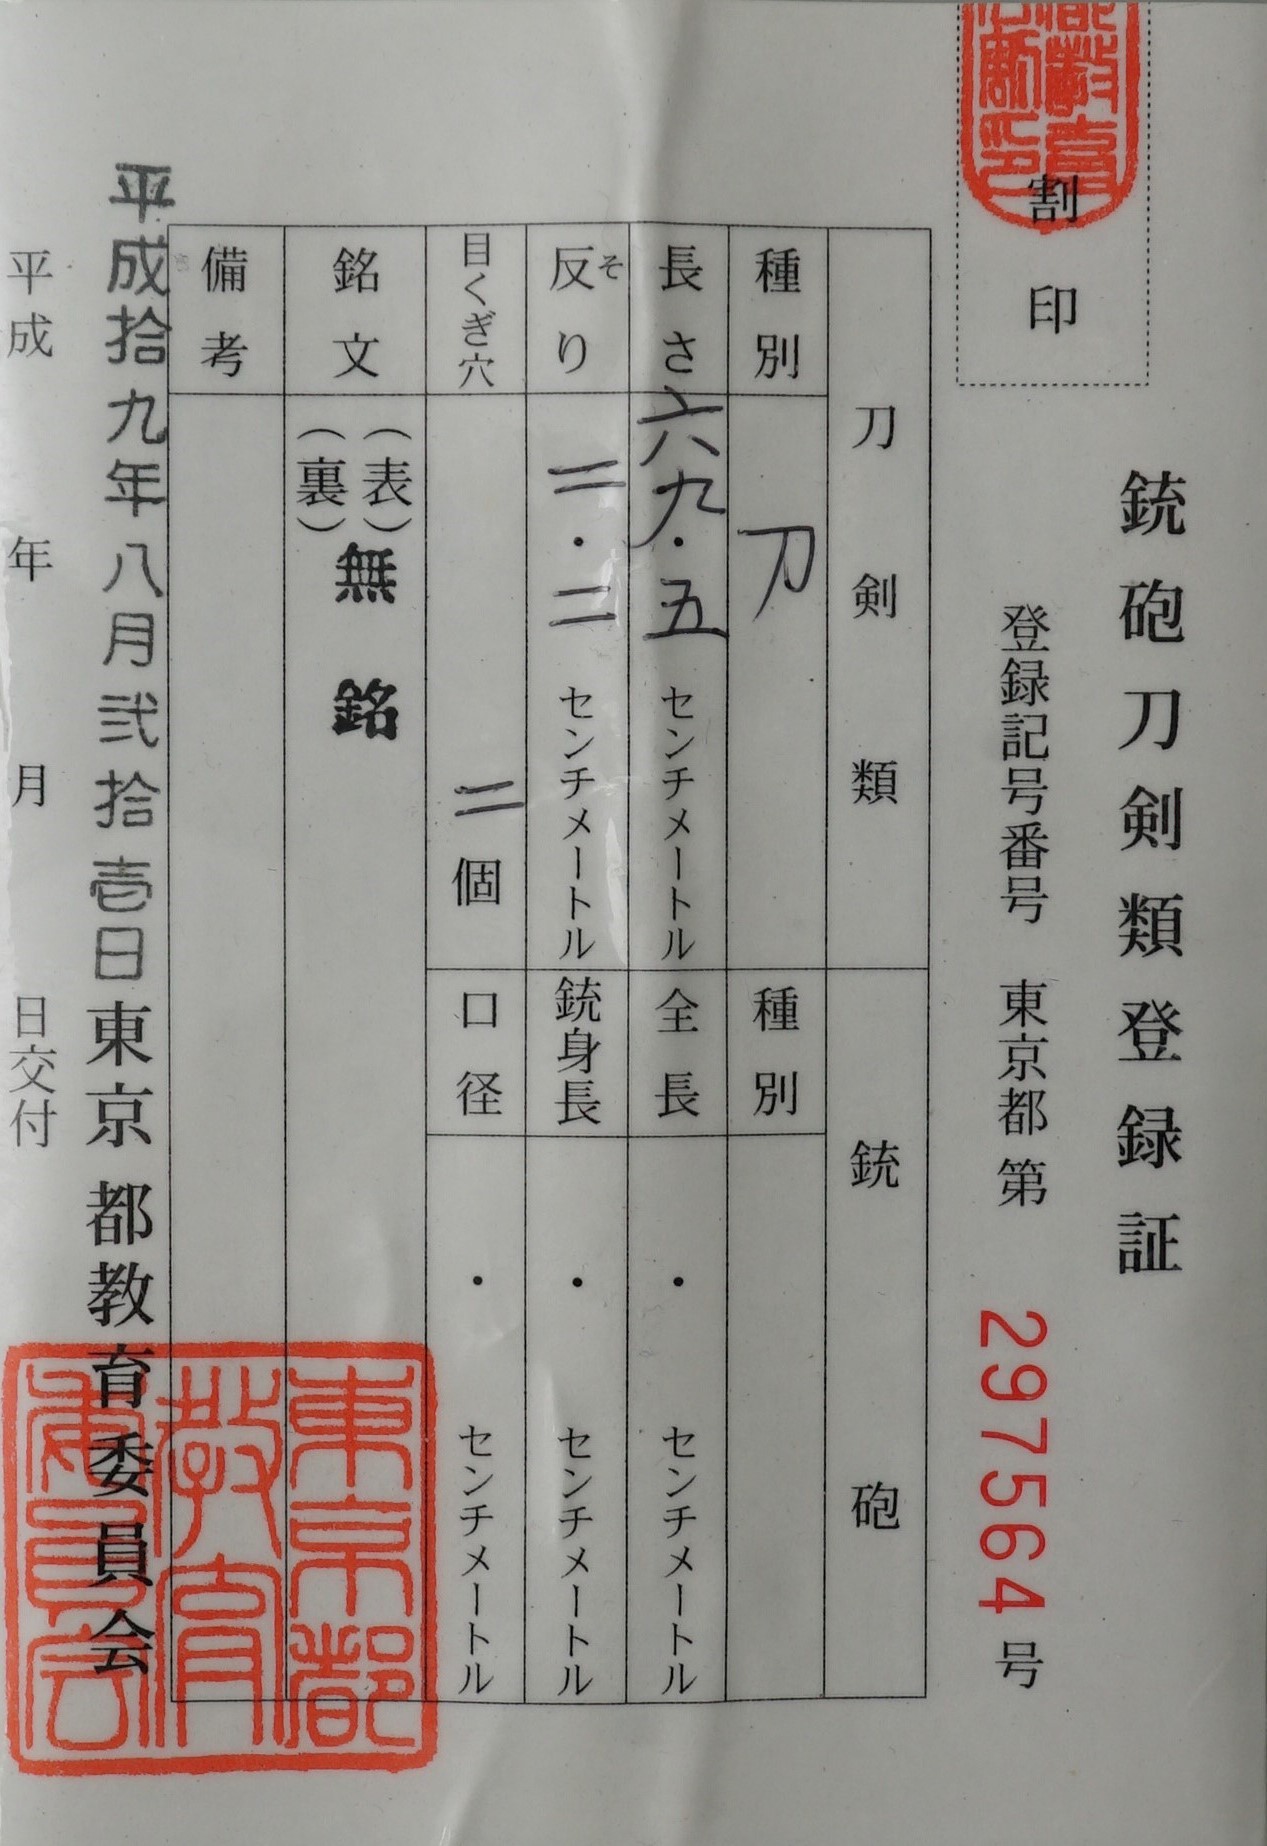 銃砲刀剣類登録証
割印
登録記号番号 東京都 第 297564 号
刀剣類
種別 刀
長さ 六九・五 センチメートル
反り 二・二 センチメートル
そ
目くぎ穴 二 個
銃砲
種別
全長 ・ センチメートル
銃身長 ・ センチメートル
口径 ・ センチメートル
銘文 (表)
(裏)
無銘
備考
平成拾九年八月弐拾壱日 東京都教育委員会
平成 年 月 日交付
東京都
教育
委員会